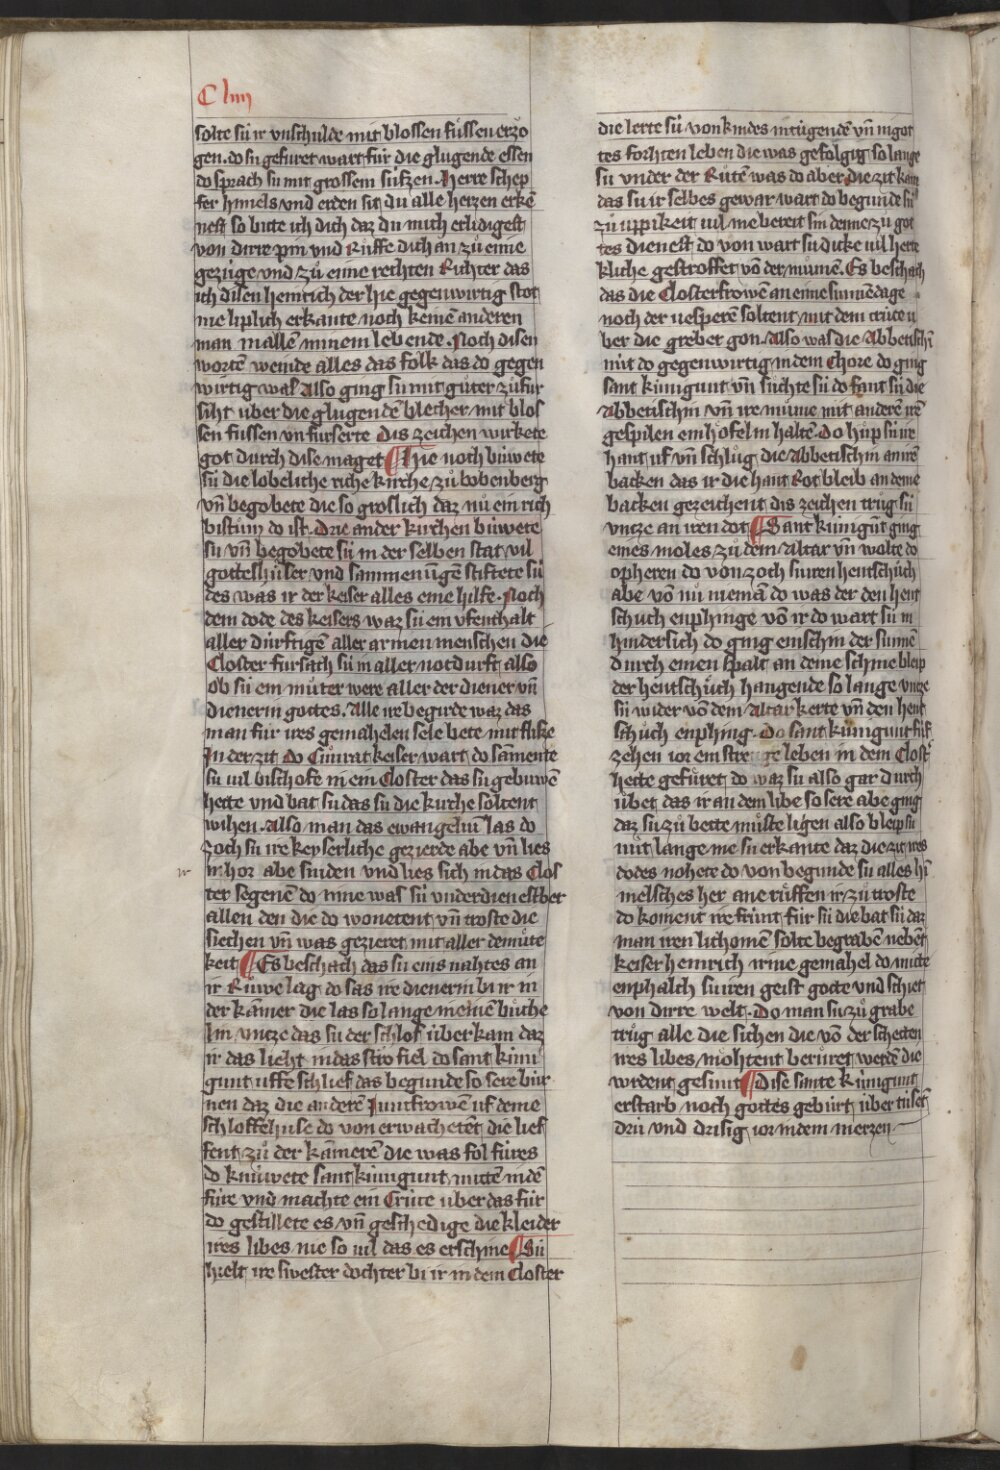 C liiij
solte sú ir vnschulde mit blossen fússen erzo
gen. do su gefúret wart fúr die glugende essen
do sprach su mit grossem sufzen. Herre schep
fer himels vnd erden sit du alle herzen erkē
nest so bitte ich dich daz du mich erlidigest
von dirre pin vnd Rúffe dich an zů eime
gezúge vnd zů eime rechten Richter das
ich disen heinrich der hie gegenwirtig stot
nie liplich erkante noch keinē anderen
man in allē minem lebende. Noch disen
wortē weinde alles das folk das do gegen
wirtig was also ging su mit gůter zůfúr
siht uber die glugendē blecher mit blos
sen fússen vn furserte Dis zeichen wirkete
got durch dise maget ¶ Hie noch búwete
sú die lobeliche riche kirche zů bobenberg
vñ begobete die so groslich daz nů ein rich
bistům do ist. Drie ander kirchen búwete
su vñ begobete sú in der selben stat vil
gotteshúser vnd sammenūgē stiftete sú
des was ir der keiser alles eine hilfe. Noch
dem dode des keisers waz sú ein vfenthalt
aller dúrftigē aller armen menschen die
Closter fursach sú in aller notdurft also
ob sú ein můter were aller der diener vñ
dienerin gottes. Alle ire begirde waz das
man fúr ires gemahelen sele bete mit flisse
In der zit do Cůnrat keiser wart do sāmente
su vil bischofe in ein Closter das su gebuwē
hette vnd bat su das sú die kirche soltent
wihen. Also man das ewangeliū las do
zoch su ire keyserliche gezierde abe vñ lies
ir hor abe sniden vnd lies sich in das Clos
ter segenē do inne was sú vnderdienestber
allen den die do wonetent vñ troste die
siechen vñ was gezieret mit aller demůte
keit ¶ Es beschach das su eins nahtes an
ir Růwe lag do sas ire dienerin bi ir in
der kāmer die las so lange in einē bůche
im vntze das su der schlof úberkam daz
ir das lieht in das stro fiel do sant kúni
gunt uffe schlief das begunde so sere bur
nen daz die anderē Juncfrowē uf deme
schloffehuse do von erwachetēt die lief
fent zů der kāmerē die was fol fúres
do knúwete sant kúnigunt mittē in dē
fúre vnd machte ein Crúce uber das fúr
do gestillete es vñ geschedige die kleider
ires libes nie so uil das es erschine ¶ Sú
hielt ire swester dochter bi ir in dem Closter
die lerte sú von kindes in túgendē vñ in got
tes forhten leben die was gefolgig so lange
sú vnder der Rútē was do aber die zit kam
das su ir selbes gewar wart do begunde su
zů úppikeit uil me bereit sin denne zů got
tes dienest do von wart su dicke uil herte
kliche gestroffet vō der můmē. Es beschach
das die Closterfrowē an eime sunnēdage
noch der uesperē soltent mit dem crúce ú
ber die greber gon. Also was die Abbetischī
nút do gegenwirtig in dem Chore do ging
sant kúnigunt vñ sůchte sú do fant sú die
Abbetischin vñ ire můme mit anderē irē
gespilen ein hofelin haltē. Do hůp sú ire
hant uf vñ schlůg die Abbetischin an irē
backen das ir die hant Rot bleib an deme
backen gezeichent dis zeichen trůg sú
vntze an iren dot ¶ Sant kúnigūt ging
eines moles zů dem Altar vñ wolte do
opheren do von zoch su iren hentschůch
abe vō nú niemā do was der den hent
schůch enphinge vō ir do wart su in
hinderlich do ging ein schin der sunnē
durch einen spalt an deme schine bleip
der hentschůch hangende so lange vntze
sú wider vō dem Altar kerte vñ den hent
schůch enphing. Do sant kúnigunt fúf
zehen ior ein stre ge leben in dem Clost
hette gefúret do waz su also gar durch
úbet das ir an dem libe so sere abe ging
daz su zů bette můste ligen also bleip su
nút lange me su erkante daz die zit ires
dodes nohete do von begunde sú alles hī
melsches her ane růffen ir zů troste
do koment ire frúnt fúr sú die bat sú daz
man iren lichomē solte begraben nebēt
keiser heinrich irme gemahel do mitte
enphalch su iren geist gotte vnd schiet
von dirre welt. Do man su zů grabe
trůg alle die sichen die vō der schetten
ires libes mohtent berúret werdē die
wrdent gesunt ¶ Dise sante kúnigunt
erstarb noch gottes gebúrt úber tusēt
drú vnd drisig ior in dem merzen